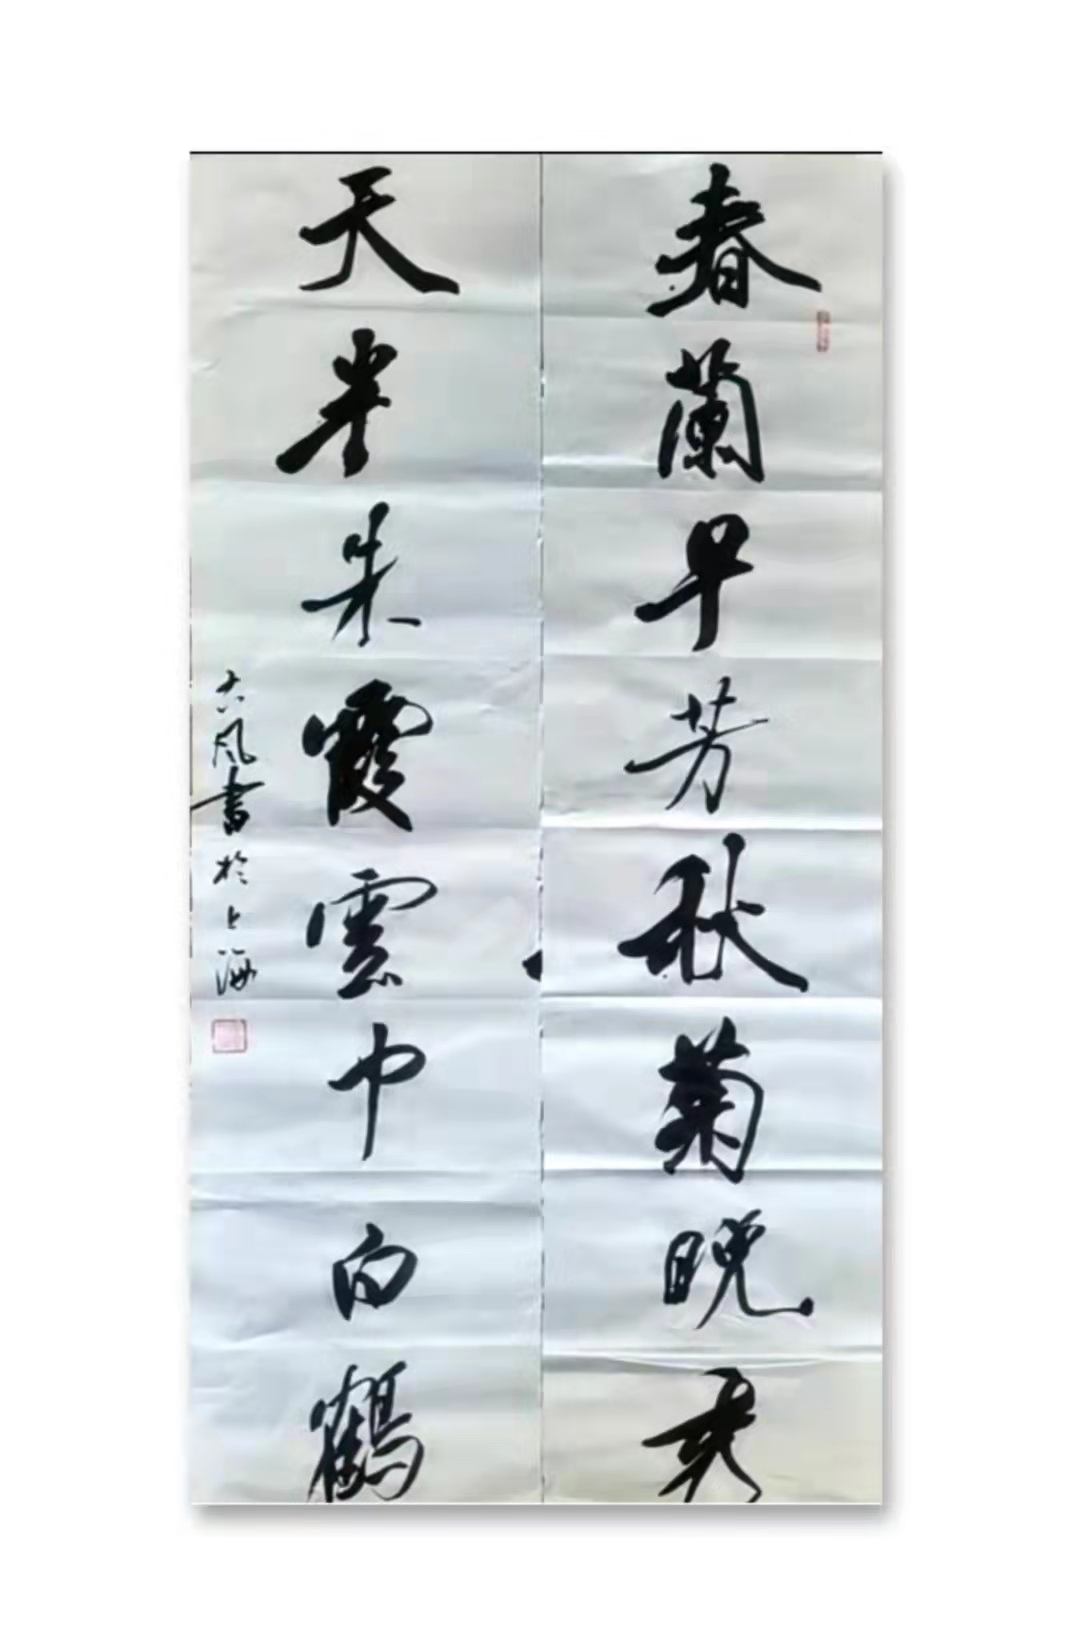 春蘭早芳秋菊晚秀
天半朱霞雲中白鶴
古風書於上海